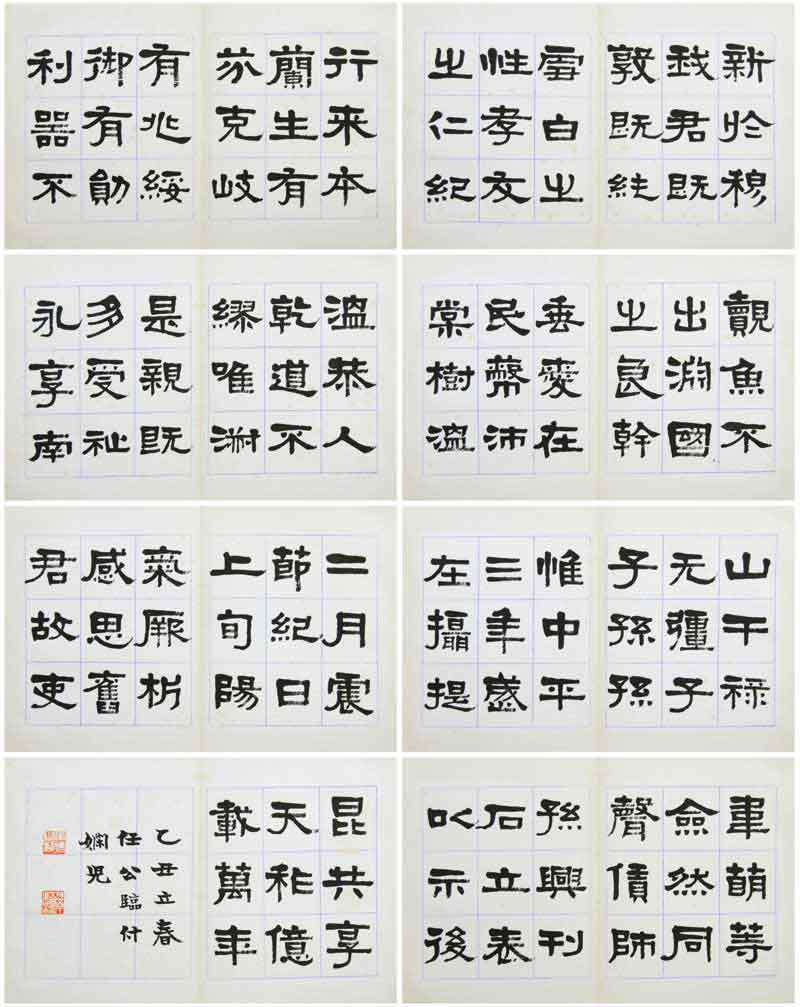 新於穆
我君既
敦既純
雪白之
性孝友
之仁紀
行來本
蘭生有
芬克岐
有兆綏
御有勛
利器不
覿魚不
出淵國
之良幹
垂愛在
民蔽沛
棠樹溫
溫恭人
乾道不
繆唯淑
是親既
多受祉
永享南
山干祿
无疆子
子孫孫
惟中平
三年歲
在攝提
二月震
節紀日
上旬陽
氣厥析
感思舊
君故吏
韋萌等
僉然同
聲賃師
孫興刊
石立表
以示後
昆共享
天祚億
載萬年
乙丑立春
任公臨付
嫻兒